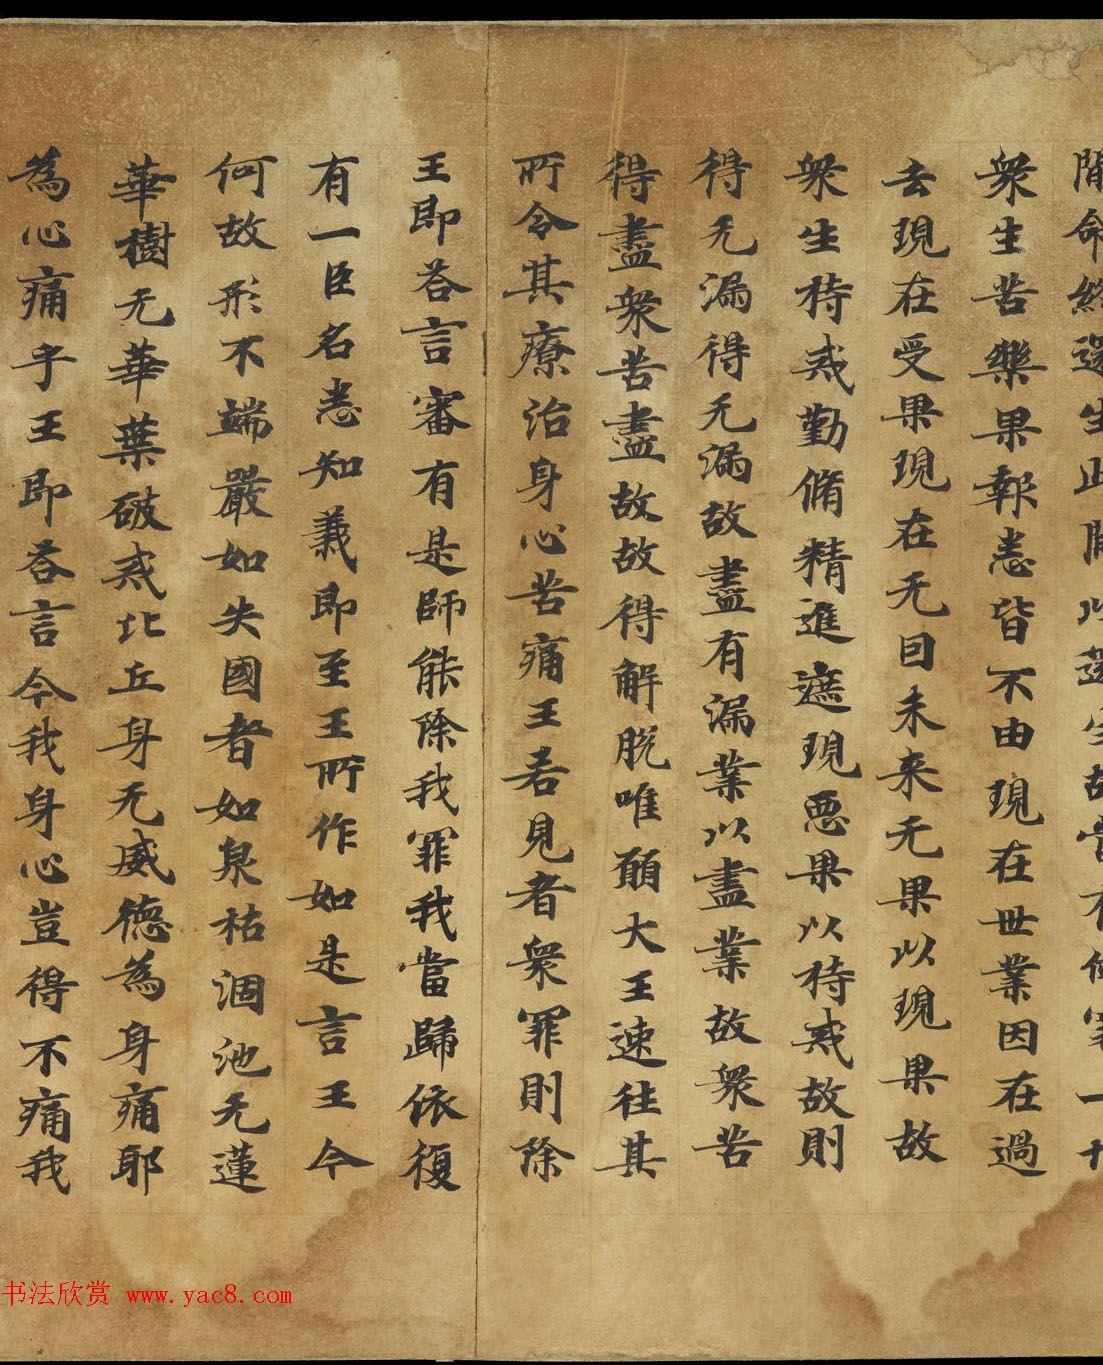 間命終還生此間以還生故當有何罪一切
衆生苦樂果報悉皆不由現在世業因在過
去現在受果現在无因未来无果以現果故
衆生持戒勤脩精進遮現惡果以持戒故則
得无漏得无漏故盡有漏業以盡業故衆苦
得盡衆苦盡故故得解脱唯願大王速往其
所令其療治身心苦痛王若見者衆罪則除
王即荅言審有是師能除我罪我當歸依復
有一臣名悉知義即至王所作如是言王今
何故形不端嚴如失國者如泉枯涸池无蓮
華樹无華葉破戒比丘身无威德為身痛耶
為心痛乎王即荅言今我身心豈得不痛我
书法欣赏 www.yac8.com